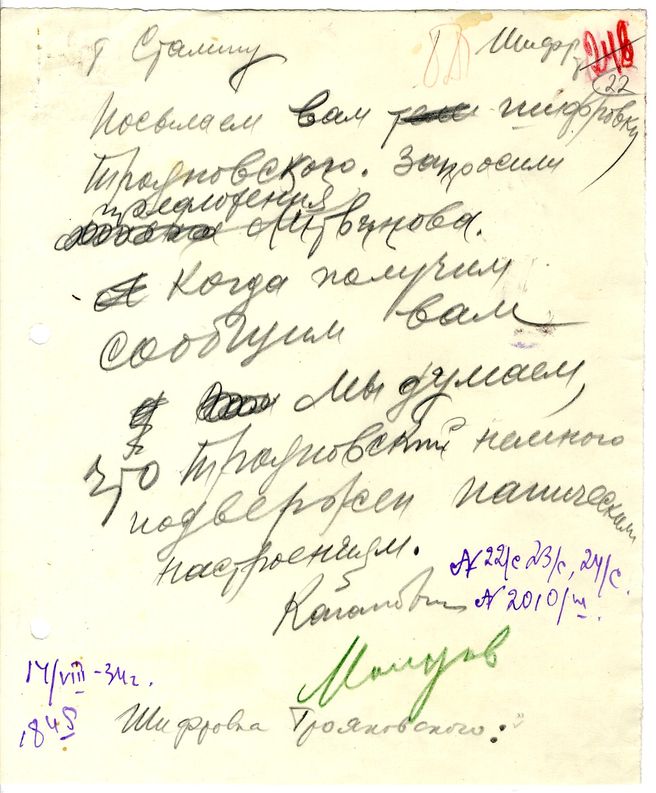 т Сталину
Шифром
218
22
Посылаем вам шифровку
Трояновского. Запросили
предложения
Литвинова.
Когда получим
сообщим вам
Мы думаем,
что Трояновский немного
подвержен паническим
настроениям.
N 22/с 23/с, 24/с.
Каганович N 2010/ш.
Молотов
14/VIII-34г.
18 45
Шифровка Трояновского: